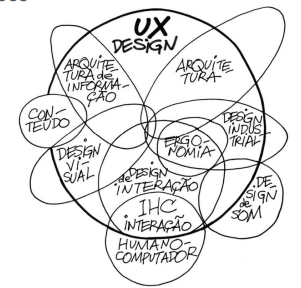 UX
DESIGN
ARQUITE
TURA de
INFORMA-
ÇÃO
ARQUITE
TURA
CON-
TEUDO
DESIGN
VI-
SUAL
ERGO-
NOMIA
DESIGN
INDUS-
TRIAL
DESIGN
de INTERAÇÃO
DE
SIGN
de
SOM
IHC
INTERAÇÃO
HUMANO-
COMPUTADOR